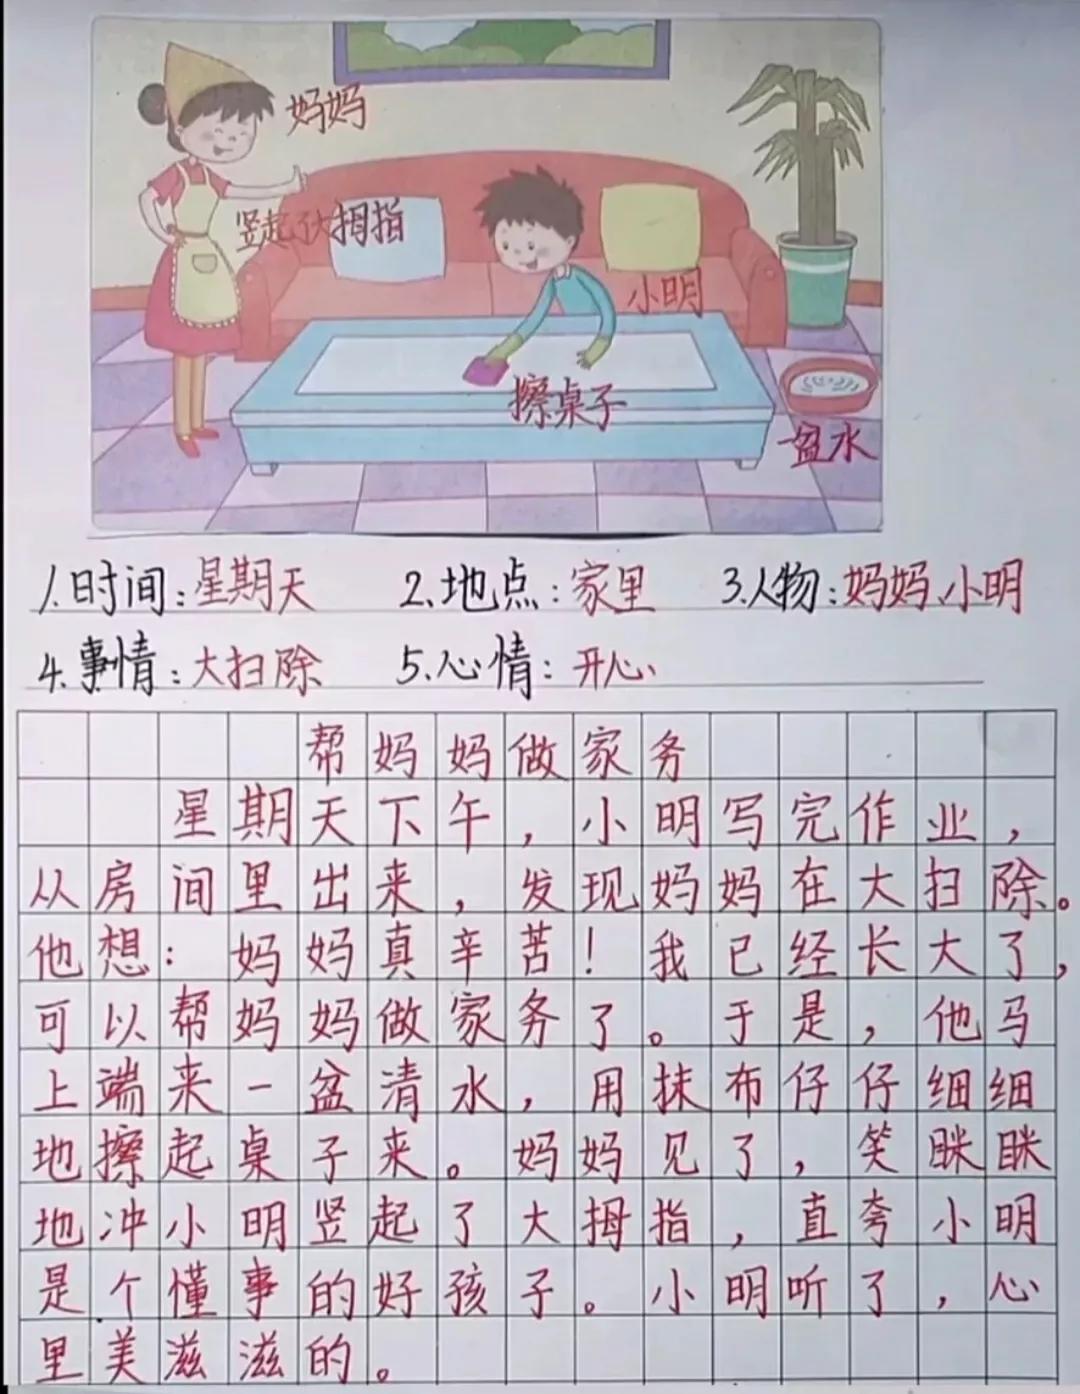 妈妈
竖起大拇指
小明
擦桌子
一盆水
1.时间:星期天 2.地点:家里 3.人物:妈妈、小明
4.事情:大扫除 5.心情:开心
帮妈妈做家务
星期天下午，小明写完作业，
从房间里出来，发现妈妈在大扫除。
他想：妈妈真辛苦！我已经长大了，
可以帮妈妈做家务了。于是，他马
上端来一盆清水，用抹布仔仔细细
地擦起桌子来。妈妈见了，笑眯眯
地冲小明竖起了大拇指，直夸小明
是个懂事的好孩子。小明听了，心
里美滋滋的。